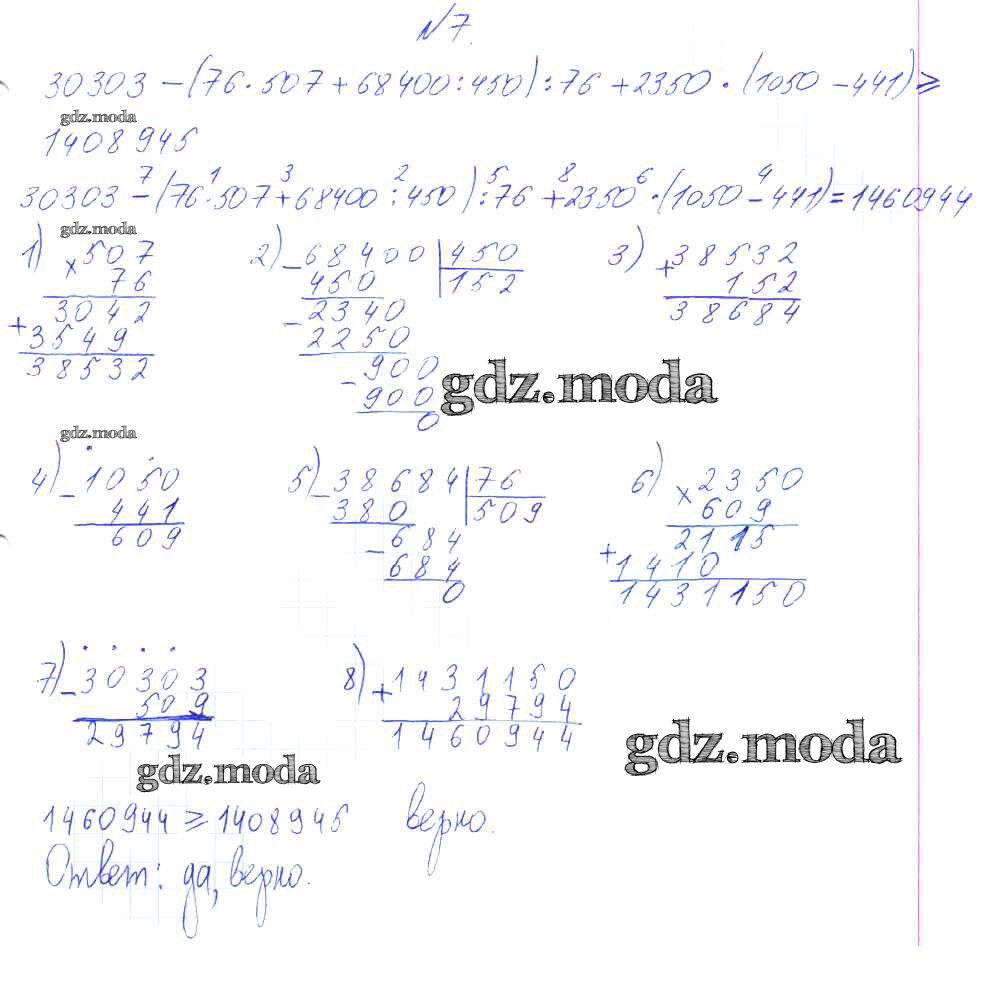 №7.
30303 – (76 · 507 + 68400 : 450) : 76 + 2350 · (1050 – 441) ≥
gdz.moda
1408945
7 1 3 2 5 8 6 4
30303 – (76 · 507 + 68400 : 450) : 76 + 2350 · (1050 – 441) = 1460944
gdz.moda
1) × 507
76
3042
+ 3549
38532
2) – 68400 | 450
450 | 152
– 2340
2250
– 900
900
0
3) + 38532
152
38684
gdz.moda
gdz.moda
4) – 1050
441
609
5) – 38684 | 76
380 | 509
– 684
684
0
6) × 2350
609
2115
+ 1410
1431150
7) – 30303
509
29794
8) + 1431150
29794
1460944
gdz.moda
gdz.moda
1460944 ≥ 1408945 верно.
Ответ: да, верно.